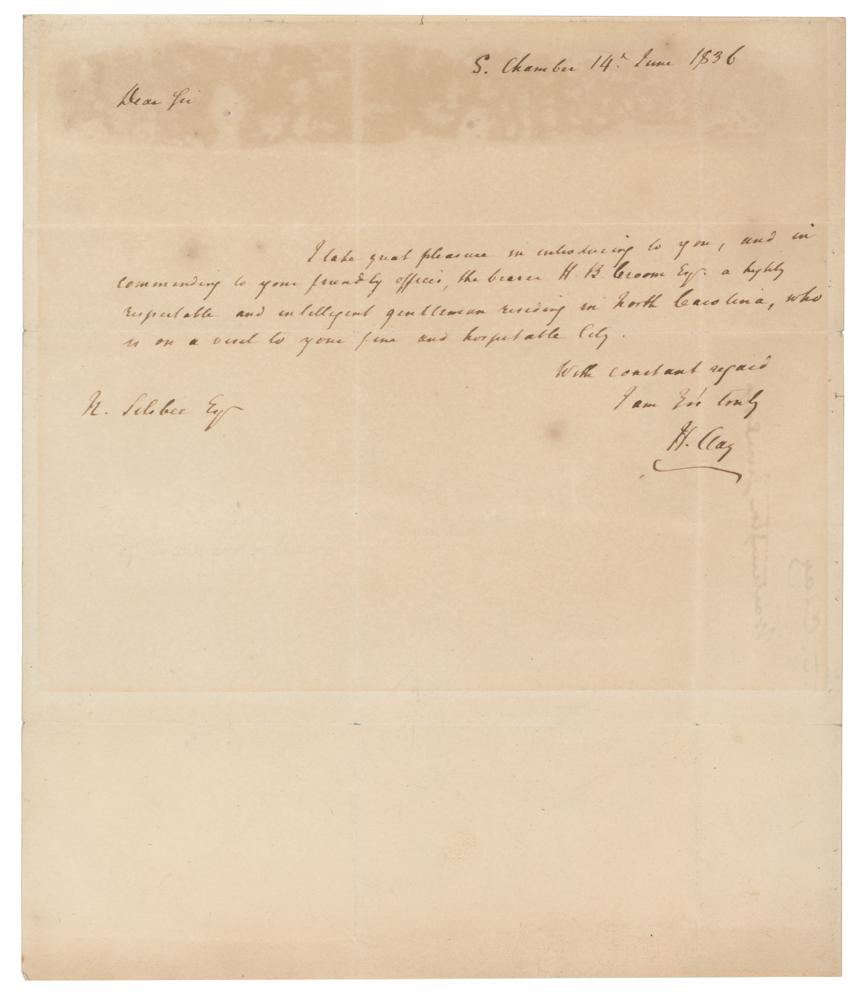 S. Chamber 14th June 1836
Dear Sir
I take great pleasure in introducing to you, and in
commending to your friendly offices, the bearer H. B. Croom Esqr. a highly
respectable and intelligent gentleman residing in North Carolina, who
is on a visit to your fine and hospitable City.
With constant regard
I am Yrs truly
H. Clay
N. Silsbee Esqr